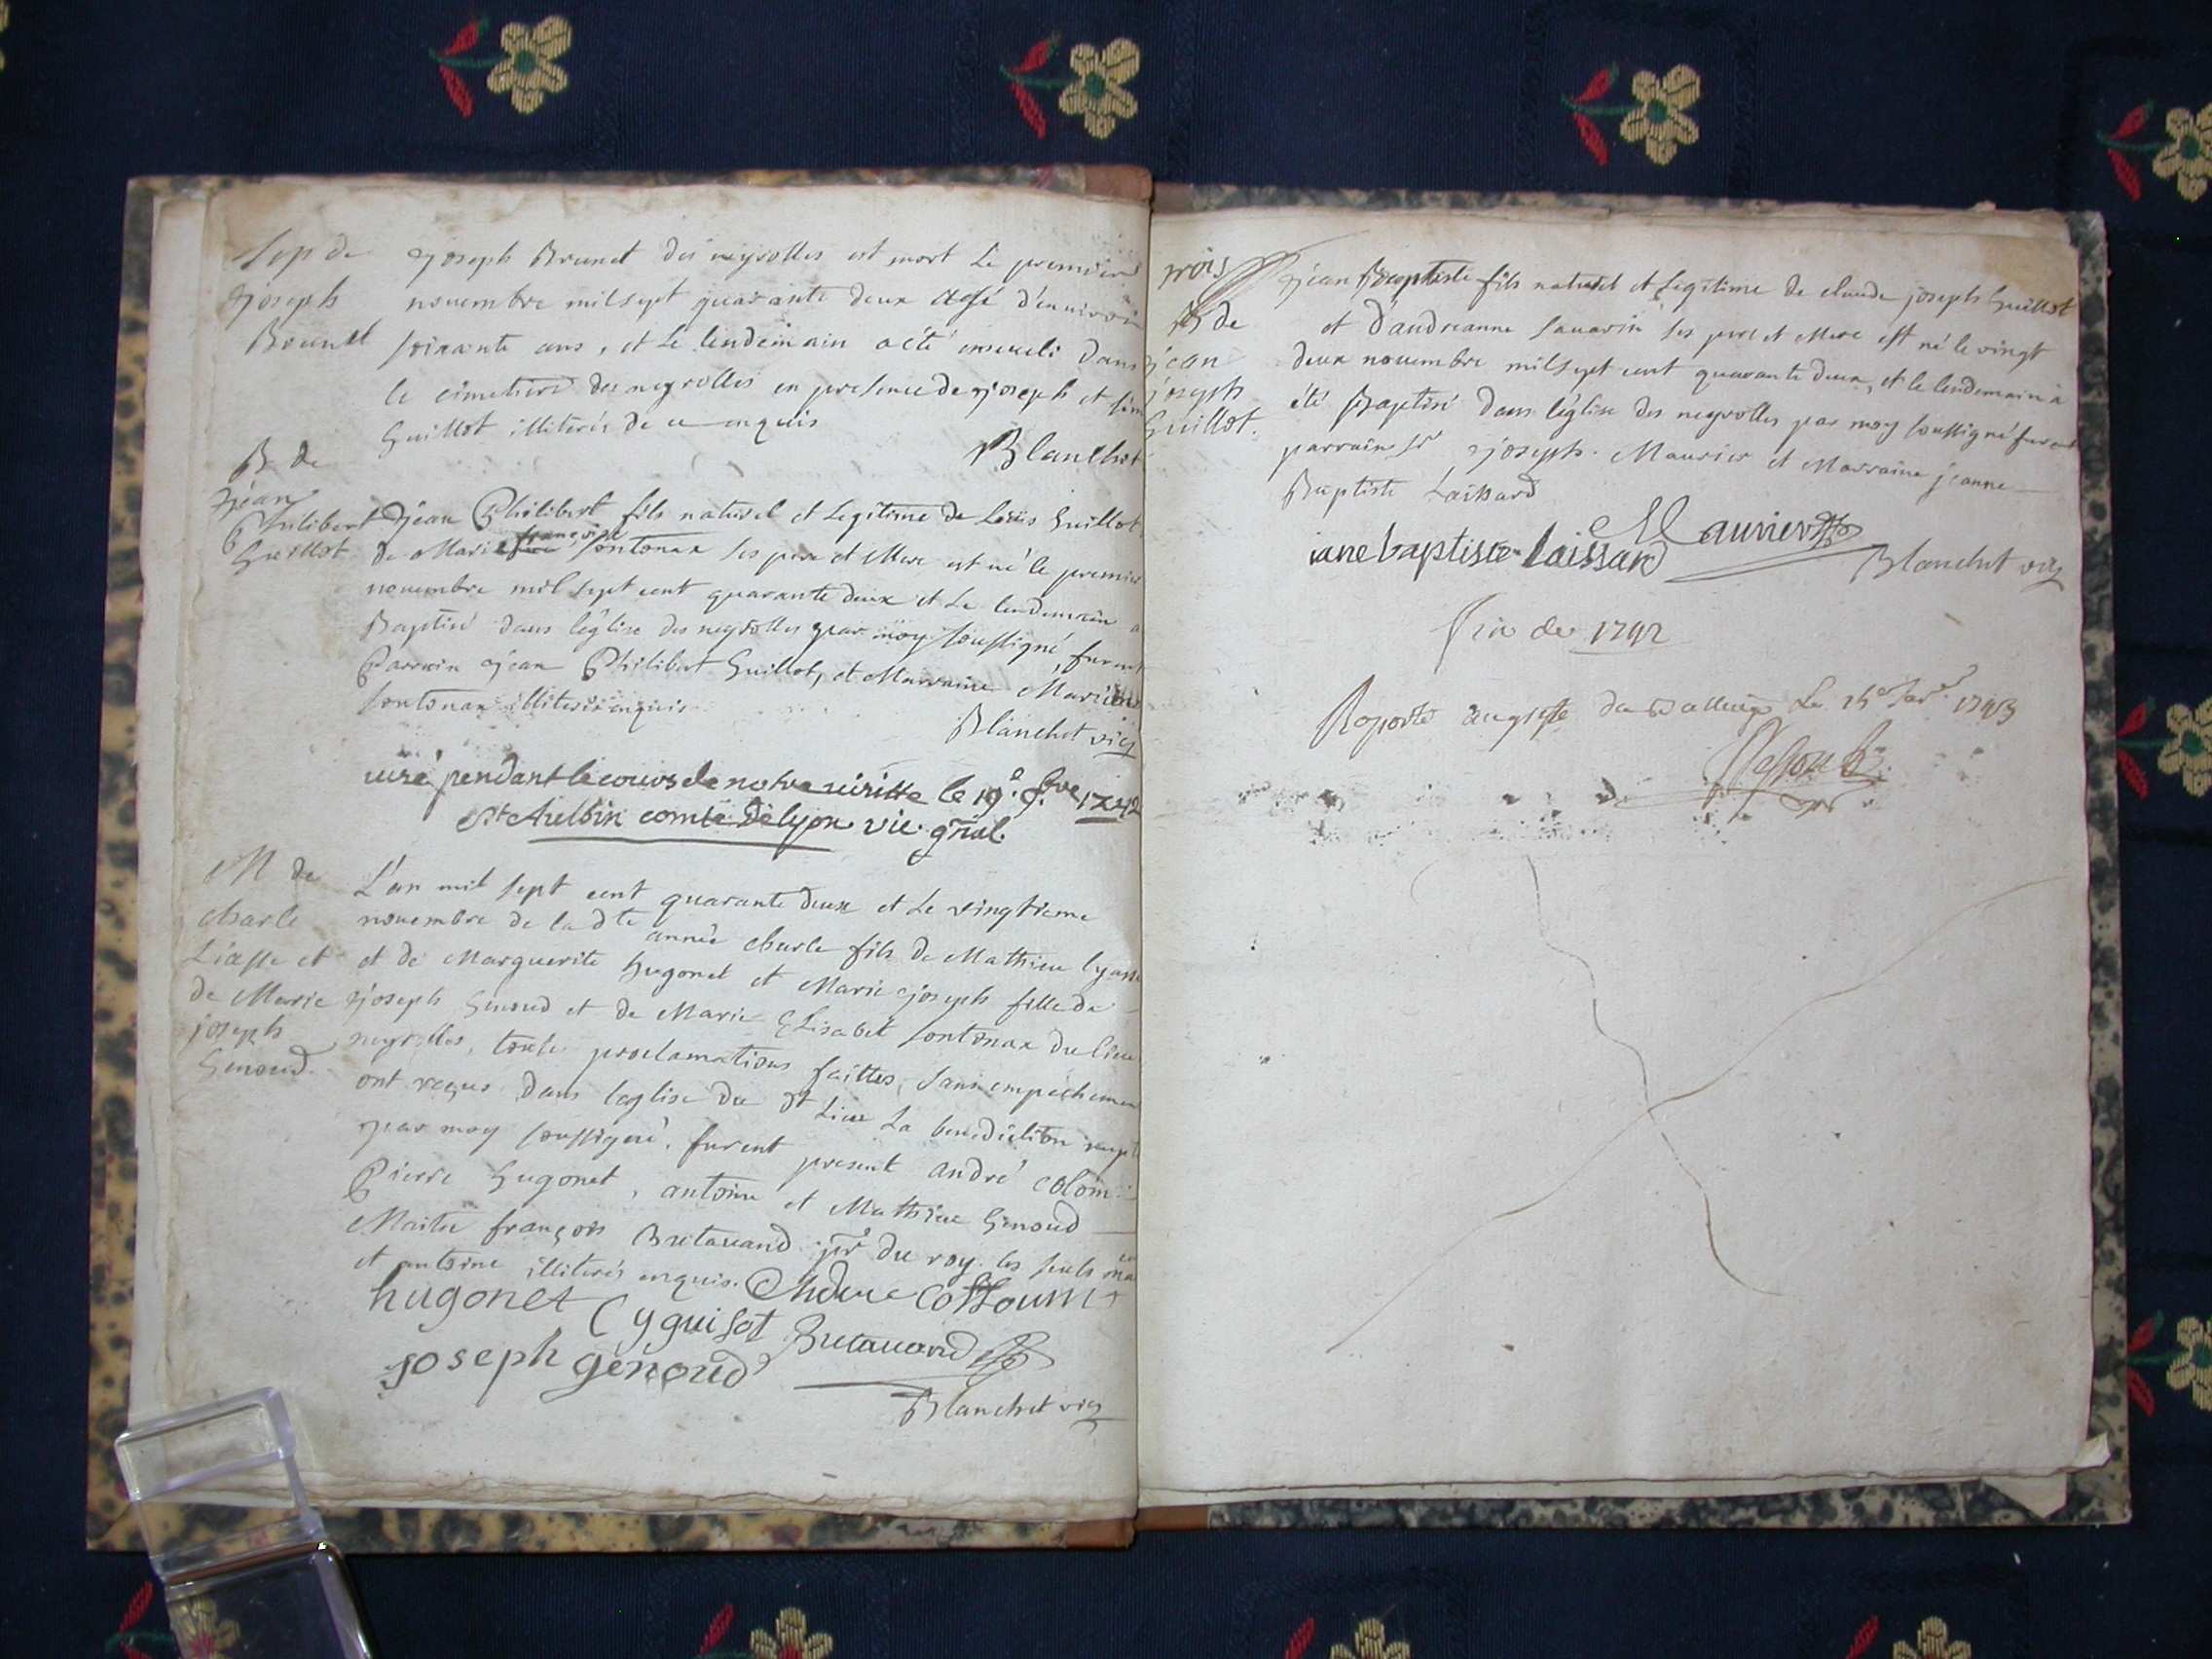 Sep de
Joseph
Brunet
Joseph Brunet des neyrolles est mort Le premier
novembre mil sept quarante deux agé d'environ
soixante ans, et Le lendemain a été enseveli dans
le cimetiere des neyrolles en presence de joseph et
Guillot illiterés de ce enquis
Blanchet
B de
jean
Philibert
Guillot
jean Philibert fils naturel et Legitime de Loüis Guillot
de Marie françoise sontonax ses pere et Mere est né le premier
novembre mil sept cent quarante deux et Le lendemain a
Baptisé dans l'église des neyrolles par moy soussigné, furent
Parrain jean Philibert Guillot, et Marraine Marie
sontonax illiterés enquis
Blanchet vic
pendant le cours de notre visitte le 19e 9bre 1742
St Aulbin comte de lyon vic. gnal.
M de
charle
Liasse et
de Marie
joseph
Genoud
L'an mil sept cent quarante deux et Le vingtieme
novembre de la dte année charle fils de Mathieu lyasse
et de Marguerite hugonet et Marie joseph fille de
joseph Genoud et de Marie Elisabet sontonax du lieu
neyrolles, toutes proclamations faittes, sans empechement
ont reçus dans l'eglise du dt Lieu La benediction nupt
par moy soussigné. furent present andré colom
Pierre hugonet, antoine et Mathieu Genoud
Maitre françois Bretavand pr du roy. les seuls
et antoine illiterés enquis.
hugonet
Cyguisot Bretavand
joseph genoud
Blanchet vic
trois
B de
jean
joseph
Guillot.
jean Baptiste fils naturel et Legitime de claude joseph Guillot
et d'andreanne savarin ses pere et Mere est né le vingt
deux novembre mil sept cent quarante deux, et le lendemain à
été Baptisé dans l'église des neyrolles par moy soussigné furent
parrain Sr joseph Maurier et Marraine jeanne
Baptiste Laissard
Maurier
iane baptiste laissard
Blanchet vic
Fin de 1742
Raporté au greffe du Bailliage Le 1743